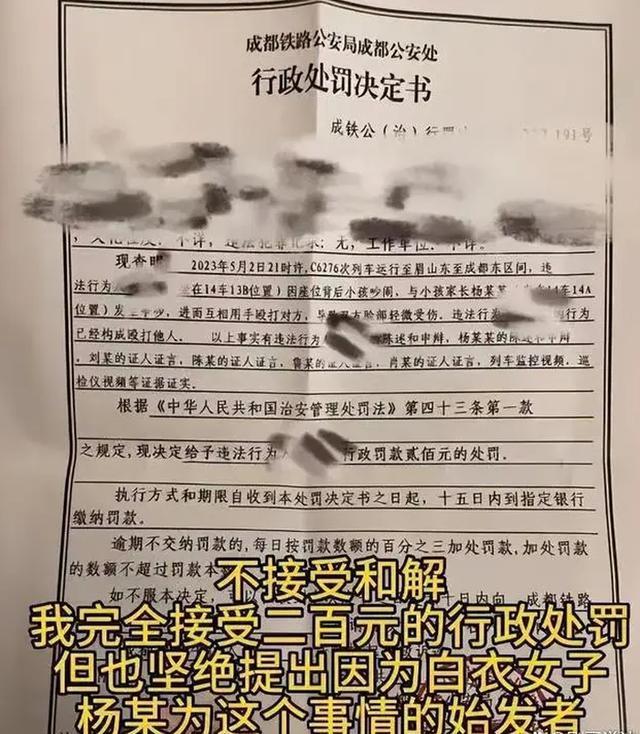 成都铁路公安局成都公安处
行政处罚决定书
成铁公(治)行罚 191号
违法犯罪记录:无,工作单位:不详。
现查明 2023年5月2日21时许,C6276次列车运行至眉山东至成都东区间,违
法行为 在14车13B位置)因座位背后小孩吵闹,与小孩家长杨某某 14车14A
位置)发生 进而互相用手殴打对方,导致双方脸部轻微受伤。违法行为 的行为
已经构成殴打他人。 以上事实有违法行为 陈述和申辩,杨某某的陈述和申辩,
刘某的证人证言,陈某的证人证言,鲁某的证人证言,肖某的证人证言,列车监控视频,巡
检仪视频等证据证实。
根据《中华人民共和国治安管理处罚法》第四十三条第一款
之规定,现决定给予违法行为人 行政罚款贰佰元的处罚.
执行方式和期限自收到本处罚决定书之日起,十五日内到指定银行
缴纳罚款。
逾期不交纳罚款的,每日按罚款数额的百分之三加处罚款,加处罚款
的数额不超过罚款本
如不服本决定, 十日内向 成都铁路
不接受和解
我完全接受二百元的行政处罚
但也坚绝提出因为白衣女子
杨某为这个事情的始发者